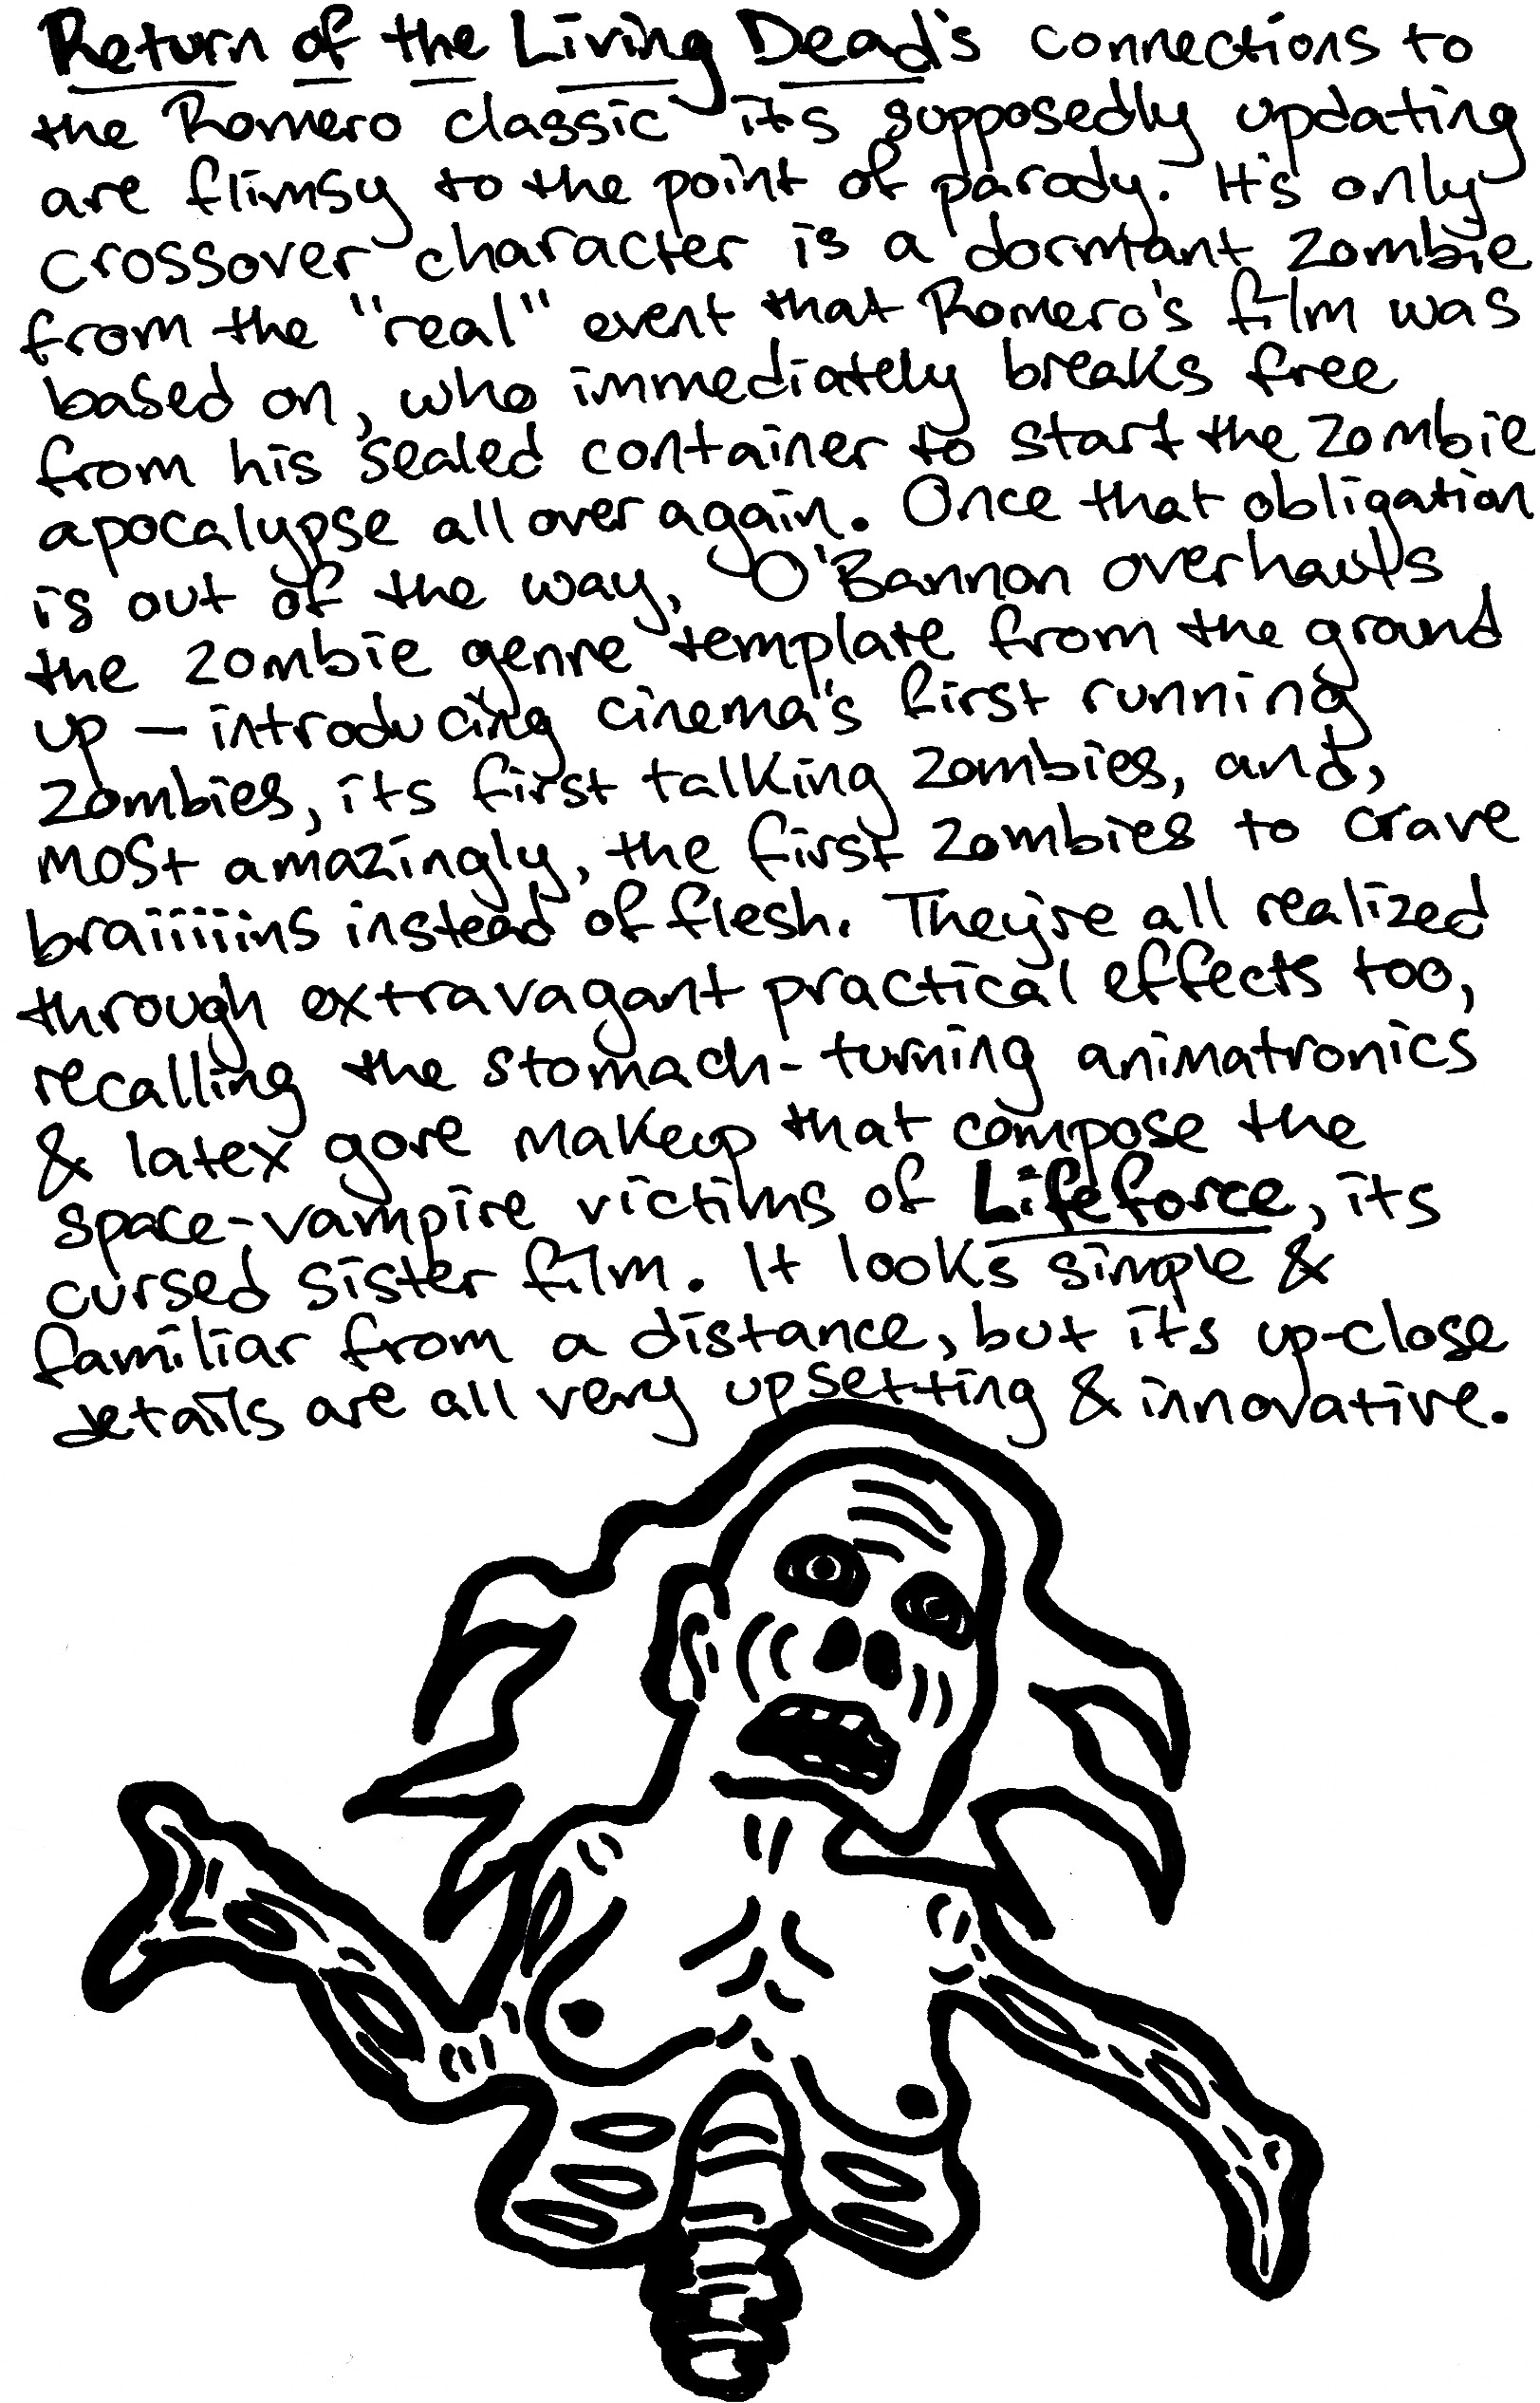 Return of the Living Dead's connections to
the Romero classic its supposedly updating
are flimsy to the point of parody. It's only
crossover character is a dormant zombie
from the "real" event that Romero's film was
based on, who immediately breaks free
from his sealed container to start the zombie
apocalypse all over again. Once that obligation
is out of the way, O'Bannon overhauls
the zombie genre template from the ground
up – introducing cinema's first running
zombies, its first talking zombies, and,
most amazingly, the first zombies to crave
braiiiiiins instead of flesh. They're all realized
through extravagant practical effects too,
recalling the stomach-turning animatronics
& latex gore makeup that compose the
space-vampire victims of Lifeforce, its
cursed sister film. It looks simple &
familiar from a distance, but its up-close
details are all very upsetting & innovative.